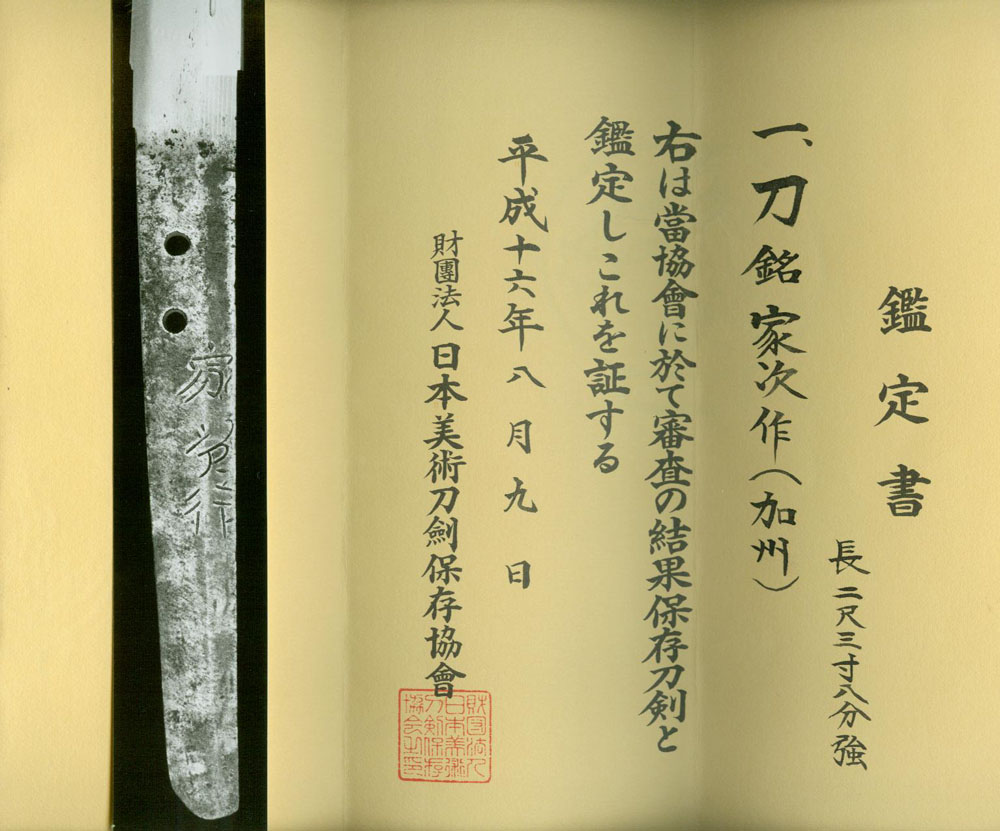 鑑定書
長二尺三寸八分強
一、刀 銘 家次作（加州）
右は當協會に於て審査の結果保存刀剣と
鑑定しこれを証する
平成十六年八月九日
財團法人 日本美術刀劍保存協會
財団法人
日本美術
刀剣保存
協会之印
家次作